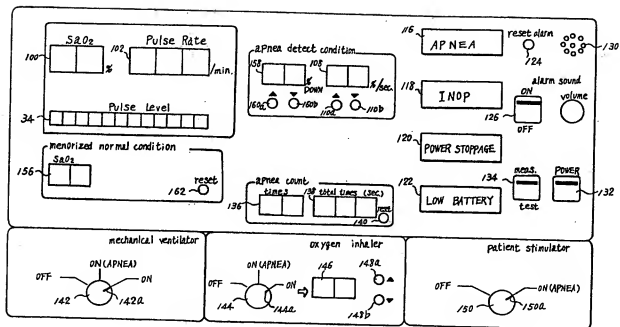 SaO2
Pulse Rate
100
102
%
/min.
Pulse Level
34
memorized normal condition
SaO2
156
reset
162
apnea detect condition
158
108
% DOWN
%/sec.
160a
160b
110a
110b
apnea count
times
138 total times (sec)
136
reset
140
116
APNEA
reset alarm
124
130
118
INOP
alarm sound
ON
126
OFF
volume
120
POWER STOPPAGE
122
LOW BATTERY
134
meas.
test
POWER
132
mechanical ventilator
ON (APNEA)
OFF
ON
142
142a
oxygen inhaler
ON (APNEA)
OFF
ON
144
144a
146
148a
148b
patient stimulator
ON (APNEA)
OFF
ON
150
150a